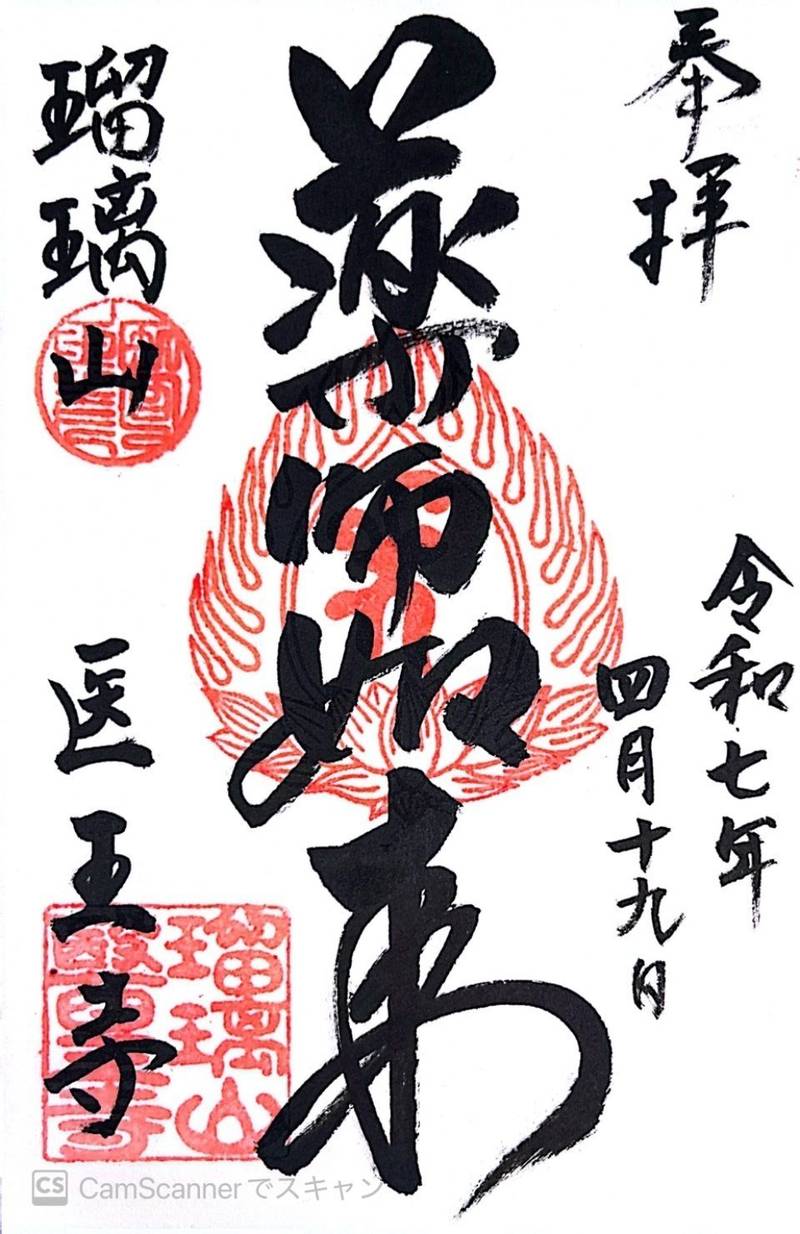 奉拝
令和七年
四月十九日
薬師如来
瑠璃山
医王寺
瑠璃山
醫王寺
CS CamScannerでスキャン